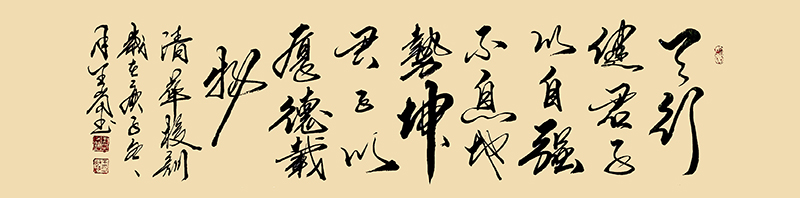 天行
健君子
以自强
不息地
勢坤
君子以
厚德載
物
清華校訓
歲在庚子冬
月書